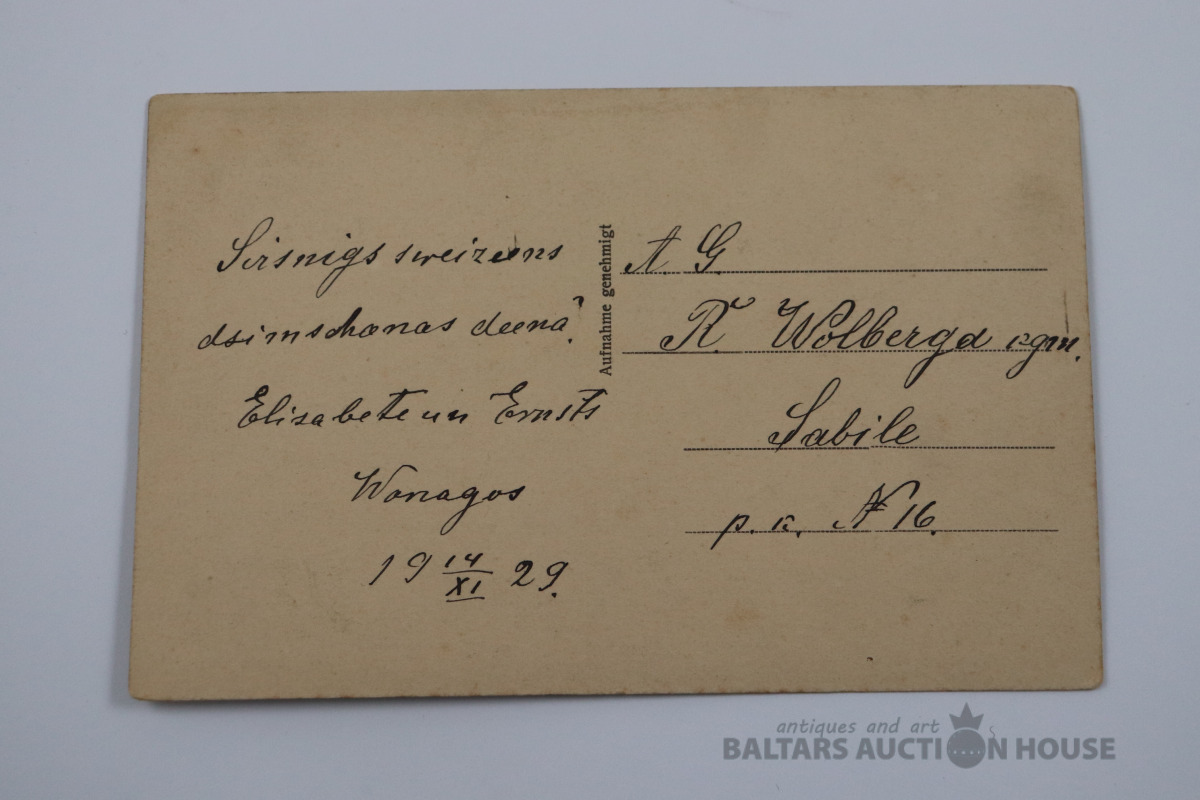 Sirsnigs sweizeens
dsimschanas deenā.
Elisabete un Ernsts
Wanagos
19 14/XI 29.
Aufnahme genehmigt
A. G.
R. Wolberga kgm.
Sabile
p. k. № 16.
antiques and art
BALTARS AUCTION HOUSE